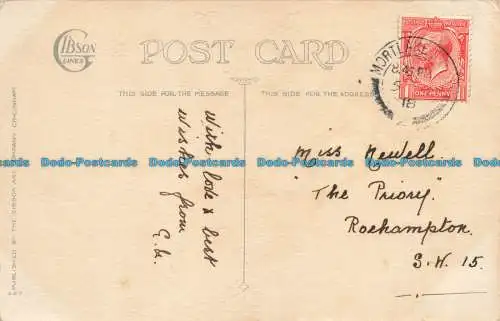 GIBSON
LINES
POST CARD
THIS SIDE FOR THE MESSAGE
THIS SIDE FOR THE ADDRESS
MORTLAKE
18
ONE PENNY
With love & best
wishes from
Miss Newell
"The Priory"
Roehampton
S.W. 15.
PUBLISHED BY THE GIBSON ART COMPANY, CINCINNATI
Dodo-Postcards Dodo-Postcards Dodo-Postcards Dodo-Postcards
Dodo-Postcards Dodo-Postcards Dodo-Postcards Dodo-Postcards